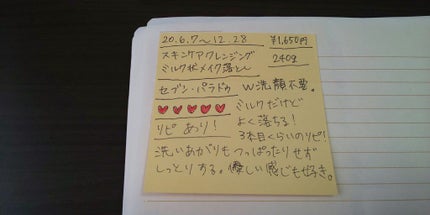 20.6.7〜12.28
¥1,650円
スキンケアクレンジング
240g
ミルク状メイク落とし
セブン・パラドゥ
W洗顔不要。
♥♥♥♥♥
ミルクだけど
よく落ちる！
リピあり！
3本目くらいのリピ！
洗いあがりもつっぱったりせず
しっとりする。優しい感じも好き。